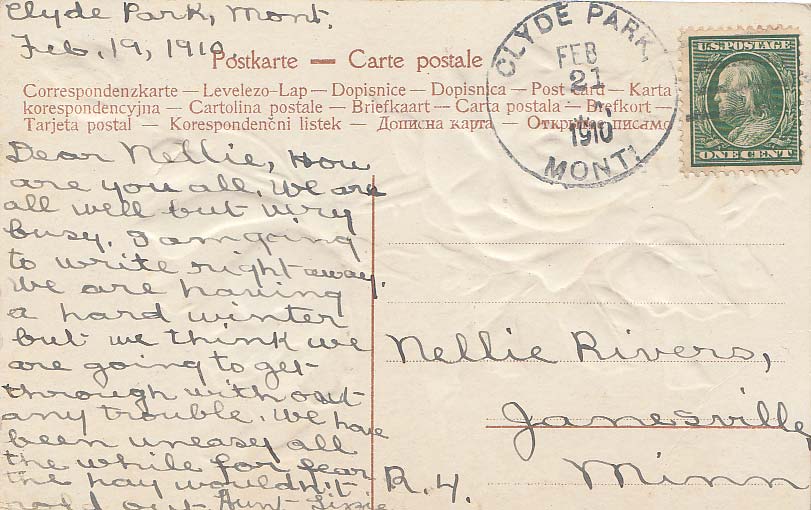 Clyde Park, Mont.
Feb. 19, 1910.
Postkarte — Carte postale
Correspondenzkarte — Levelezo-Lap — Dopisnice — Dopisnica — Post card — Karta
korespondencyjna — Cartolina postale — Briefkaart — Carta postala — Brefkort —
Tarjeta postal — Korespondenčni listek — Дописна карта — Открытое письмо
CLYDE PARK,
FEB
21
1910
MONT.
U.S. POSTAGE
ONE CENT
Dear Nellie, How
are you all. We are
all well but very
busy. I am going
to write right away.
We are having
a hard winter
but we think we
are going to get
through with out
any trouble. We have
been uneasy all
the while for fear
the hay wouldn't
hold out Aunt Lizzie
Nellie Rivers,
Janesville
Minn
R.4.